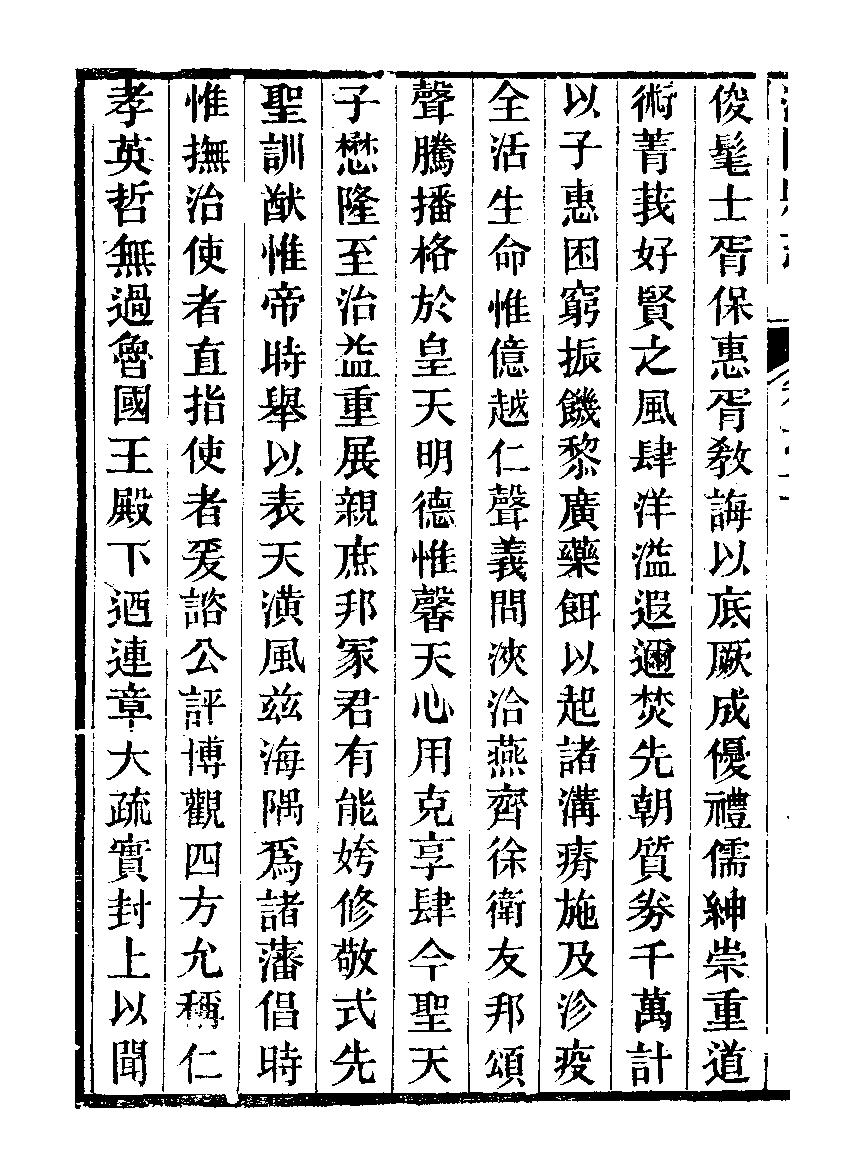 俊髦士胥保惠胥教誨以底厥成優禮儒紳崇重道
術菁莪好賢之風肆洋溢遐邇焚先朝質劵千萬計
以子惠困窮振饑黎廣藥餌以起諸溝瘠施及沴疫
全活生命惟億越仁聲義問浹洽燕齊徐衛友邦頌
聲騰播格於皇天明德惟馨天心用克享肆今聖天
子懋隆至治益重展親庶邦冢君有能姱修敬式先
聖訓猷惟帝時舉以表天潢風兹海隅爲諸藩倡時
惟撫治使者直指使者爰諮公評博觀四方允稱仁
孝英哲無過魯國王殿下迺連章大疏實封上以聞